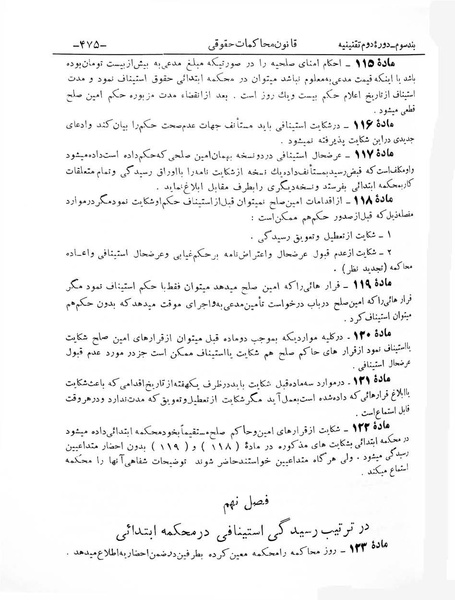 بندسوم ـ دورهٔ دوم تقنینیه    قانون محاکمات حقوقی    ـ۴۷۵ـ
مادهٔ ۱۱۵ ـ احکام امنای صلحیه را در صورتیکه مبلغ مدعی‌به بیش از بیست تومان بوده
باشد یا اینکه قیمت مدعی‌به معلوم نباشد میتوان در محکمه ابتدائی حقوق استیناف نمود و مدت
استیناف از تاریخ اعلام حکم بیست و یک روز است . بعد از انقضاء مدت مزبوره حکم امین صلح
قطعی میشود .
مادهٔ ۱۱۶ ـ در شکایت استینافی باید مستأنف جهات عدم صحت حکم را بیان کند و ادعای
جدیدی در این شکایت پذیرفته نمیشود .
مادهٔ ۱۱۷ ـ عرضحال استینافی در دو نسخه بهمان امین صلحی که حکم داده است داده میشود
و او مکلف است که قبض رسید بمستأنف داده یک نسخه از شکایت نامه را با اوراق رسیدگی و تمام متعلقات
کار بمحکمه ابتدائی بفرستد و نسخه دیگری را بطرف مقابل ابلاغ نماید .
مادهٔ ۱۱۸ ـ از اقدامات امین صلح نمیتوان قبل از استیناف حکم او شکایت نمود مگر در موارد
مفصله ذیل که قبل از صدور حکم هم ممکن است :
۱ ـ شکایت از تعطیل و تعویق رسیدگی .
۲ ـ شکایت از عدم قبول عرضحال و اعتراض نامه بر حکم غیابی و عرضحال استینافی و اعاده
محاکمه ( تجدید نظر ) .
مادهٔ ۱۱۹ ـ قرار هائی را که امین صلح میدهد میتوان فقط با حکم استیناف نمود مگر
قرار هائی را که امین صلح در باب درخواست تأمین مدعی‌به و اجرای موقت میدهد که بدون حکم هم
میتوان استیناف کرد .
مادهٔ ۱۲۰ ـ در کلیه مواردیکه بموجب دو ماده قبل میتوان از قرارهای امین صلح شکایت
یا استیناف نمود از قرار های حاکم صلح هم شکایت یا استیناف ممکن است جز در مورد عدم قبول
عرضحال استینافی .
مادهٔ ۱۲۱ ـ در موارد سه ماده قبل شکایت باید در ظرف یکهفته از تاریخ اقدامی که باعث شکایت
یا ابلاغ قرارهائی که داده شده است بعمل آید مگر شکایت از تعطیل و تعویق که مدت ندارد و در هر وقت
قابل استماع است .
مادهٔ ۱۲۲ ـ شکایت از قرارهای امین و حاکم صلح مستقیماً بخود محکمه ابتدائی داده میشود
در محکمه ابتدائی بشکایت های مذکوره در مادهٔ ( ۱۱۸ ) و ( ۱۱۹ ) بدون احضار متداعیین
رسیدگی میشود . ولی هر گاه متداعیین خواستند حاضر شوند توضیحات شفاهی آنها را محکمه
استماع میکند .
فصل نهم
در ترتیب رسیدگی استینافی در محکمه ابتدائی
مادهٔ ۱۲۳ ـ روز محاکمه را محکمه معین کرده بطرفین در ضمن احضاریه اطلاع میدهد .